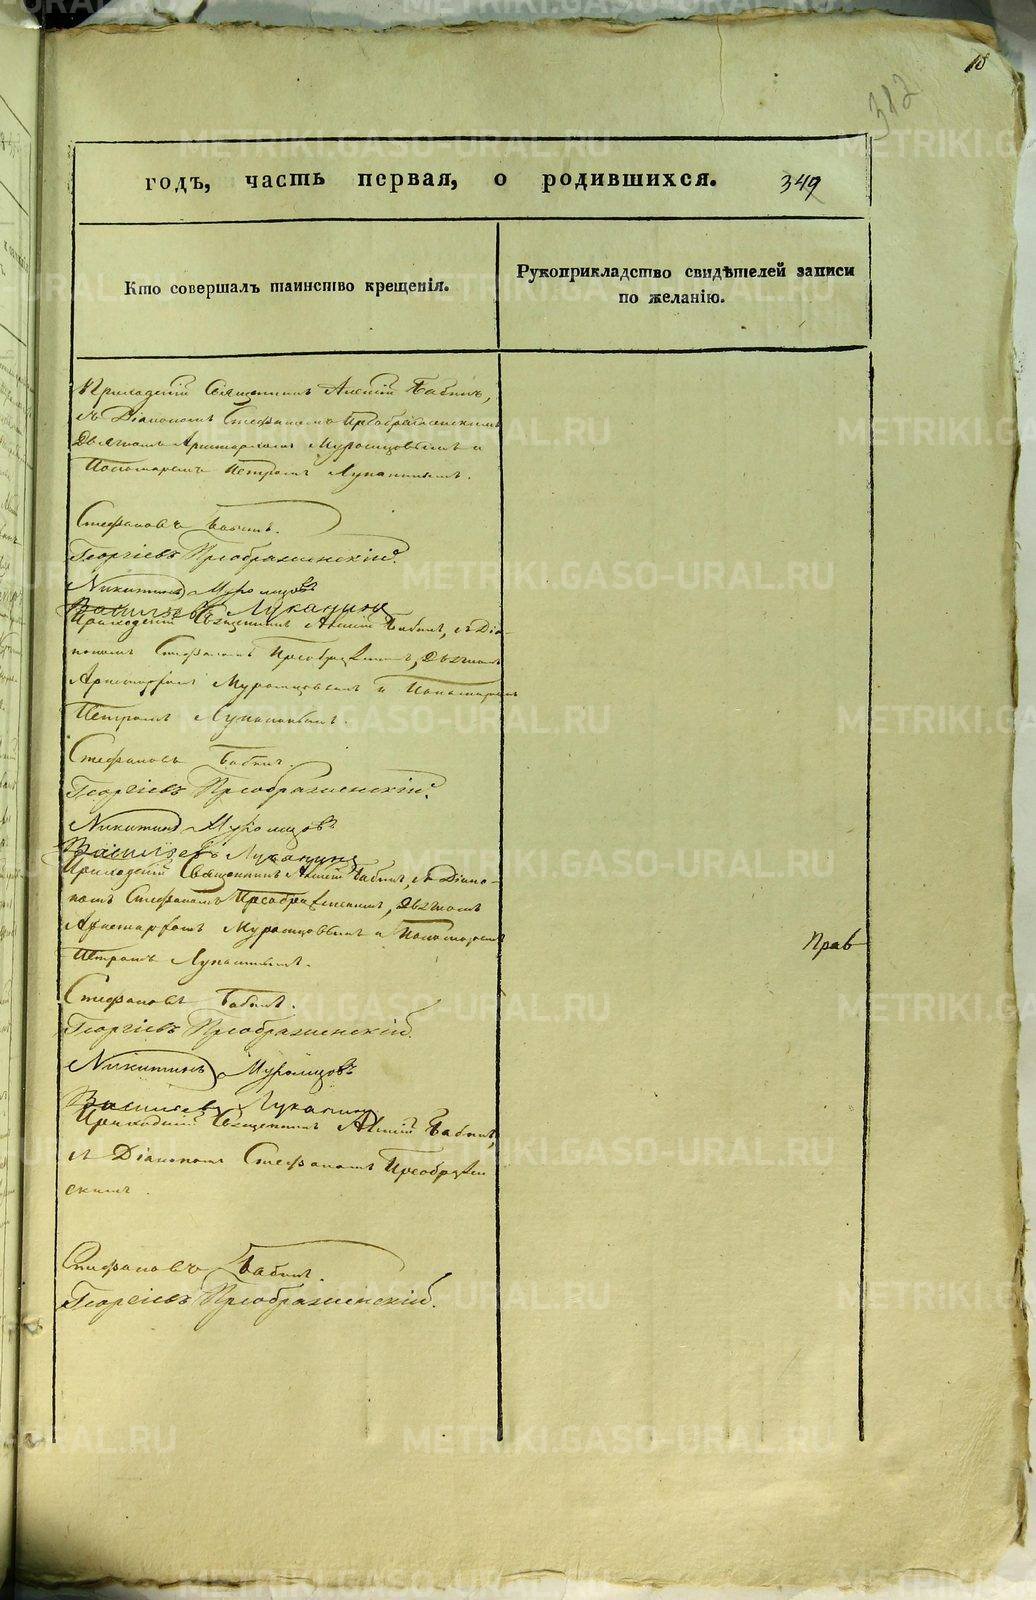 18
312
годъ, часть первая, о родившихся. 349
Кто совершалъ таинство крещенія.
Рукоприкладство свидѣтелей записи
по желанію.
Приходскій Священникъ Алексій Бабинъ,
съ Діакономъ Стефаномъ Преображенскимъ
Дьячкомъ Аристархомъ Муромцовымъ и
Пономаремъ Петромъ Луканинымъ.
Стефановъ Бабинъ.
Георгіевъ Преображенскій.
Никитинъ Муромцовъ
Васильевъ Луканинъ
Приходскій Священникъ Алексій Бабинъ, съ Діа-
кономъ Стефаномъ Преображенскимъ, Дьячкомъ
Аристархомъ Муромцовымъ и Пономаремъ
Петромъ Луканинымъ.
Стефановъ Бабинъ.
Георгіевъ Преображенскій.
Никитинъ Муромцовъ
Васильевъ Луканинъ
Приходскій Священникъ Алексій Бабинъ, съ Діако-
номъ Стефаномъ Преображенскимъ, Дьячкомъ
Аристархомъ Муромцовымъ и Пономаремъ
Петромъ Луканинымъ.
Прав
Стефановъ Бабинъ.
Георгіевъ Преображенскій.
Никитинъ Муромцовъ
Васильевъ Луканинъ
Приходскій Священникъ Алексій Бабинъ,
съ Діакономъ Стефаномъ Преображен
скимъ.
Стефановъ Бабинъ.
Георгіевъ Преображенскій.
METRIKI.GASO-URAL.RU